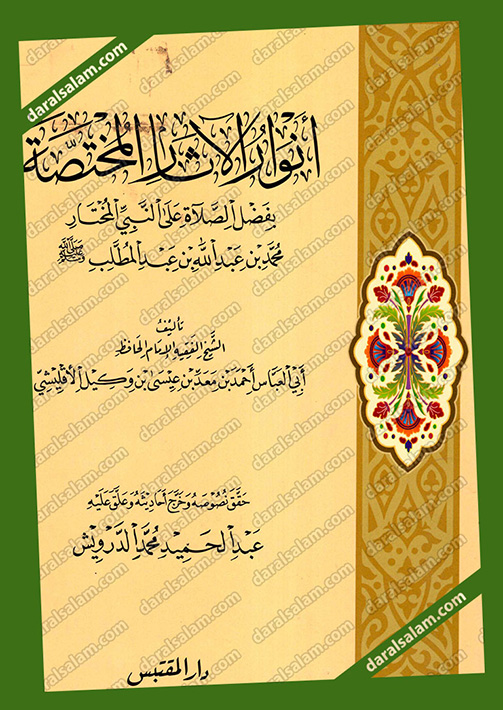 daralsalam.com
أنوار الآثار المختصة
بفضل الصلاة على النبي المختار
محمد بن عبد الله بن عبد المطلب ﷺ
تأليف
الشيخ الفقيه الإمام الحافظ
أبي العباس أحمد بن معد بن عيسى بن وكيل الأقليشي
حقق نصوصه وخرج أحاديثه وعلق عليه
عبد الحميد محمد الدرويش
دار المقتبس
daralsalam.com